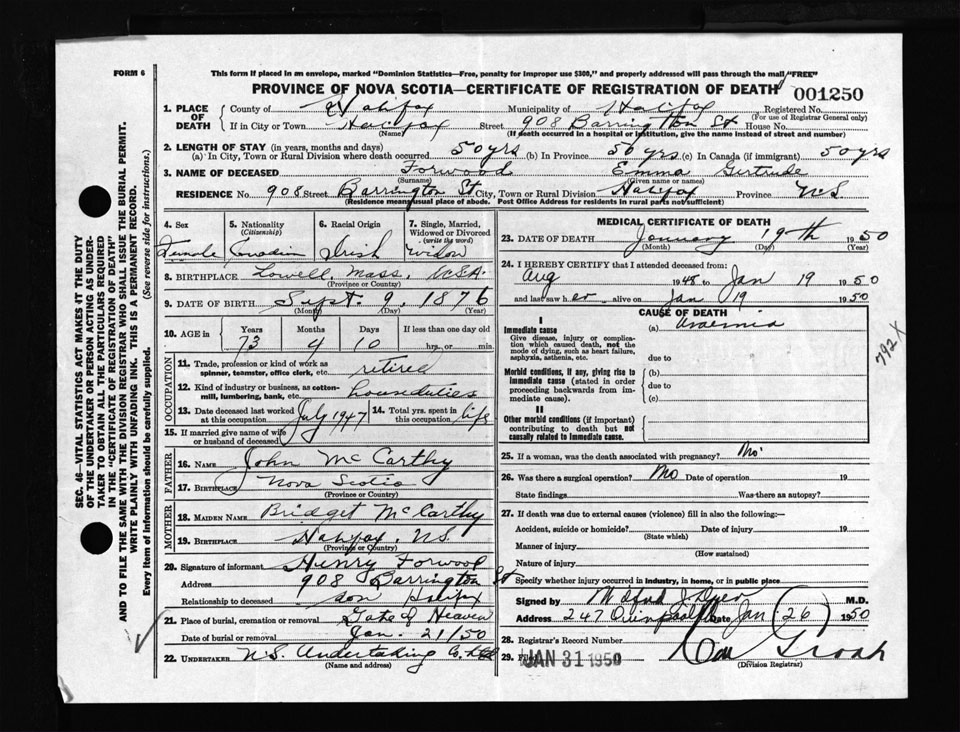 FORM 6
This form if placed in an envelope, marked "Dominion Statistics—Free, penalty for improper use $300," and properly addressed will pass through the mail "FREE"
PROVINCE OF NOVA SCOTIA—CERTIFICATE OF REGISTRATION OF DEATH 001250
1. PLACE OF DEATH
County of Halifax Municipality of Halifax Registered No.
(For use of Registrar General only)
If in City or Town Halifax Street 908 Barrington St House No.
(Name) (If death occurred in a hospital or institution, give the name instead of street and number)
2. LENGTH OF STAY (in years, months and days)
(a) In City, Town or Rural Division where death occurred 50 yrs (b) In Province 50 yrs (c) In Canada (if immigrant) 50 yrs
3. NAME OF DECEASED Forwood Emma Gertrude
(Surname) (Given name or names)
RESIDENCE No. 908 Street Barrington St City, Town or Rural Division Halifax Province N.S.
(Residence means usual place of abode. Post Office Address for residents in rural parts not sufficient)
4. Sex 5. Nationality (Citizenship) 6. Racial Origin 7. Single, Married, Widowed or Divorced (write the word)
Female Canadian Irish Widow
8. BIRTHPLACE Lowell, Mass, U.S.A.
(Province or Country)
9. DATE OF BIRTH Sept. 9, 1876
(Month) (Day) (Year)
10. AGE in Years Months Days If less than one day old
73 4 10 hrs. or min.
OCCUPATION
11. Trade, profession or kind of work as spinner, teamster, office clerk, etc. retired
12. Kind of industry or business, as cotton-mill, lumbering, bank, etc. houseduties
13. Date deceased last worked at this occupation July 1947 14. Total yrs. spent in this occupation life
15. If married give name of wife or husband of deceased
FATHER
16. NAME John McCarthy
17. BIRTHPLACE Nova Scotia
(Province or Country)
MOTHER
18. MAIDEN NAME Bridget McCarthy
19. BIRTHPLACE Halifax, N.S.
(Province or Country)
20. Signature of informant Henry Forwood
Address 908 Barrington St
Relationship to deceased son Halifax
21. Place of burial, cremation or removal Gate of Heaven
Date of burial or removal Jan. 21/50
22. UNDERTAKER N.S. Undertaking Co. Ltd
(Name and address)
MEDICAL CERTIFICATE OF DEATH
23. DATE OF DEATH January 19th 1950
(Month) (Day)
24. I HEREBY CERTIFY that I attended deceased from:
Aug 1948 to Jan 19 1950
and last saw her alive on Jan 19 1950
CAUSE OF DEATH
I
Immediate cause (a) Uraemia
Give disease, injury or complication which caused death, not the mode of dying, such as heart failure, asphyxia, asthenia, etc.
due to
Morbid conditions, if any, giving rise to immediate cause (stated in order proceeding backwards from immediate cause).
(b)
due to
(c)
II
Other morbid conditions (if important) contributing to death but not causally related to immediate cause.
792X
25. If a woman, was the death associated with pregnancy? No
26. Was there a surgical operation? No Date of operation 19
State findings Was there an autopsy?
27. If death was due to external causes (violence) fill in also the following:—
Accident, suicide or homicide? Date of injury 19
(State which)
Manner of injury
(How sustained)
Nature of injury
Specify whether injury occurred in industry, in home, or in public place
Signed by M.D.
247 Date Jan 26 1950
28. Registrar's Record Number
29. Filed JAN 31 1950
(Division Registrar)
SEC. 46—VITAL STATISTICS ACT MAKES IT THE DUTY OF THE UNDERTAKER OR PERSON ACTING AS UNDERTAKER TO OBTAIN ALL THE PARTICULARS REQUIRED IN THE "CERTIFICATE OF REGISTRATION OF DEATH" AND TO FILE THE SAME WITH THE DIVISION REGISTRAR WHO SHALL ISSUE THE BURIAL PERMIT.
WRITE PLAINLY WITH UNFADING INK. THIS IS A PERMANENT RECORD.
Every item of information should be carefully supplied. (See reverse side for instructions.)